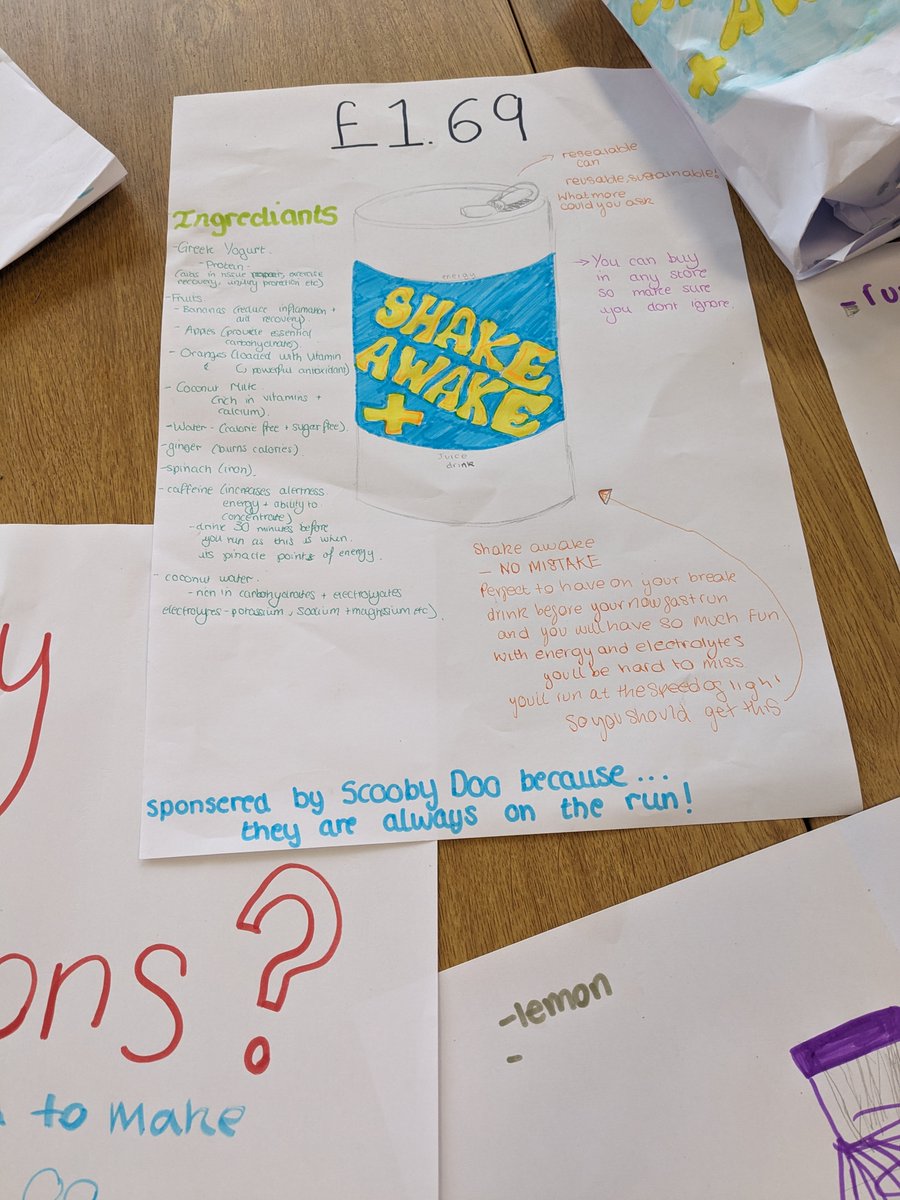 £1.69
resealable
can
reusable, sustainable!
What more
could you ask
Ingrediants
-Greek Yogurt.
- Protein.
(aids in tissue
recovery,
-Fruits.
- Bananas (reduce inflamation +
aid recovery)
- Apples (provide essential
carbohydrates)
- Oranges (loaded with vitamin
C, powerful antioxidant)
- Coconut Milk.
(rich in vitamins +
calcium).
-Water - (calorie free + sugar free).
-ginger (burns calories)
-spinach (iron).
-caffeine (increases alertness
energy + ability to
concentrate)
-drink 30 minutes before
you run as this is when
its pinacle points of energy.
- coconut water.
- rich in carbohydrates + electrolytes
electrolytes - potassium, sodium + magnesium etc).
energy
SHAKE
AWAKE
+
Juice
drink
→ You can buy
in any store
so make sure
you dont ignore
Shake awake
- NO MISTAKE
Perfect to have on your break
drink before your now fast run
and you will have so much fun
with energy and electrolytes
youll be hard to miss
youll run at the speed of light
so you should get this
sponsered by Scooby Doo because...
they are always on the run!
AWA
+
-ru
y
ons?
to make
-lemon
-